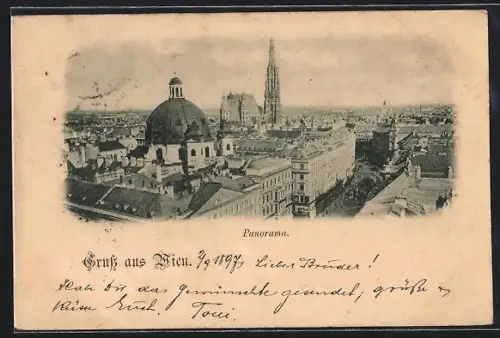 Panorama.
Gruß aus Wien. 2/9 1897 Lieber Bruder!
Habe dir das Gewünschte gesendet, grüße u
küsse Euch. Toni.